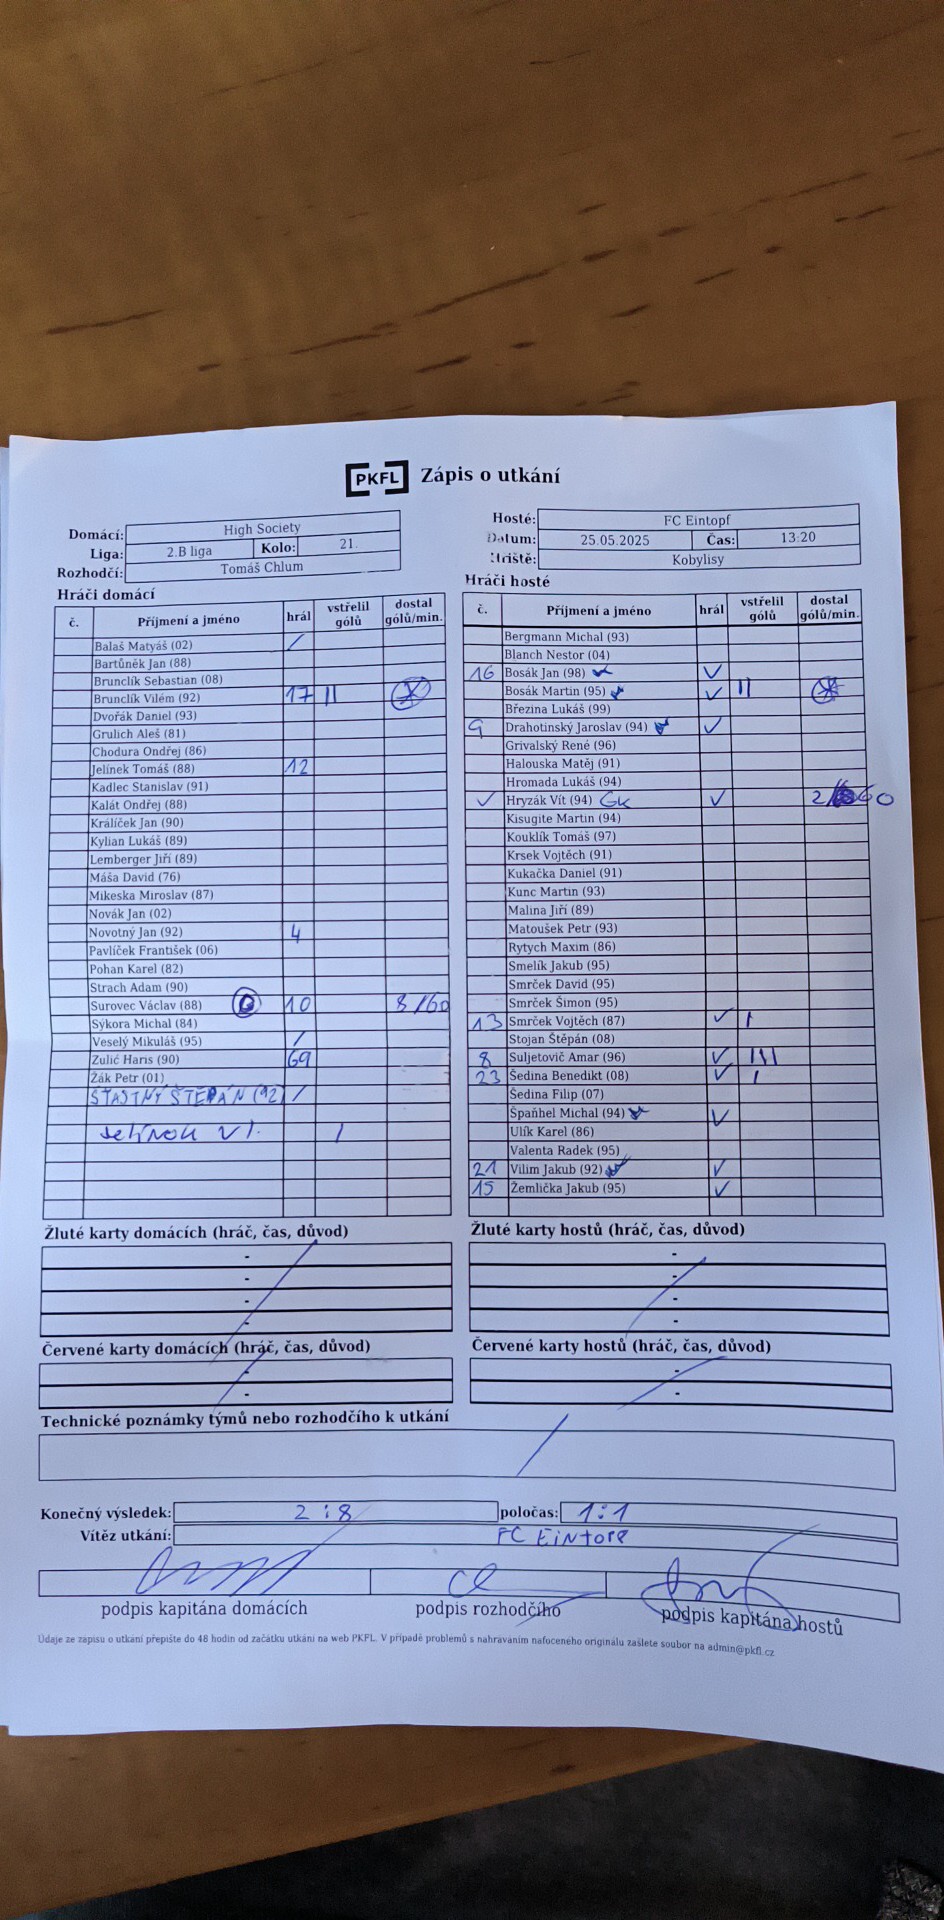 PKFL Zápis o utkání
Domácí: High Society
Liga: 2.B liga Kolo: 21.
Rozhodčí: Tomáš Chlum
Hosté: FC Eintopf
Datum: 25.05.2025 Čas: 13:20
Hřiště: Kobylisy
Hráči domácí
č. Příjmení a jméno hrál vstřelil gólů dostal gólů/min.
Balaš Matyáš (02) /
Bartůněk Jan (88)
Brunclík Sebastian (08)
Brunclík Vilém (92) 17 II
Dvořák Daniel (93)
Grulich Aleš (81)
Chodura Ondřej (86)
Jelínek Tomáš (88) 12
Kadlec Stanislav (91)
Kalát Ondřej (88)
Králíček Jan (90)
Kylian Lukáš (89)
Lemberger Jiří (89)
Máša David (76)
Mikeska Miroslav (87)
Novák Jan (02)
Novotný Jan (92) 4
Pavlíček František (06)
Pohan Karel (82)
Strach Adam (90)
Surovec Václav (88) 10 8/60
Sýkora Michal (84)
Veselý Mikuláš (95) /
Zulić Haris (90) 69
Žák Petr (01)
ŠŤASTNÝ ŠTĚPÁN (92) /
I
Hráči hosté
č. Příjmení a jméno hrál vstřelil gólů dostal gólů/min.
Bergmann Michal (93)
Blanch Nestor (04)
16 Bosák Jan (98) ✓ ✓
Bosák Martin (95) ✓ ✓ II
Březina Lukáš (99)
9 Drahotínský Jaroslav (94) ✓ ✓
Grivalský René (96)
Halouska Matěj (91)
Hromada Lukáš (94)
✓ Hryzák Vít (94) GK ✓ 2/60
Kisugite Martin (94)
Kouklík Tomáš (97)
Krsek Vojtěch (91)
Kukačka Daniel (91)
Kunc Martin (93)
Malina Jiří (89)
Matoušek Petr (93)
Rytych Maxim (86)
Smelík Jakub (95)
Smrček David (95)
Smrček Šimon (95)
13 Smrček Vojtěch (87) ✓ I
Stojan Štěpán (08)
8 Suljetovič Amar (96) ✓ IIII
23 Šedina Benedikt (08) ✓ I
Šedina Filip (07)
Špaňhel Michal (94) ✓ ✓
Ulík Karel (86)
Valenta Radek (95)
21 Vilim Jakub (92) ✓ ✓
15 Žemlička Jakub (95) ✓
Žluté karty domácích (hráč, čas, důvod)
-
-
-
-
Žluté karty hostů (hráč, čas, důvod)
-
-
-
-
Červené karty domácích (hráč, čas, důvod)
-
-
Červené karty hostů (hráč, čas, důvod)
-
-
Technické poznámky týmů nebo rozhodčího k utkání
Konečný výsledek: 2:8 poločas: 1:1
Vítěz utkání: FC EINTOPF
podpis kapitána domácích podpis rozhodčího podpis kapitána hostů
Údaje ze zápisu o utkání přepište do 48 hodin od začátku utkání na web PKFL. V případě problémů s nahráváním nafoceného originálu zašlete soubor na admin@pkfl.cz